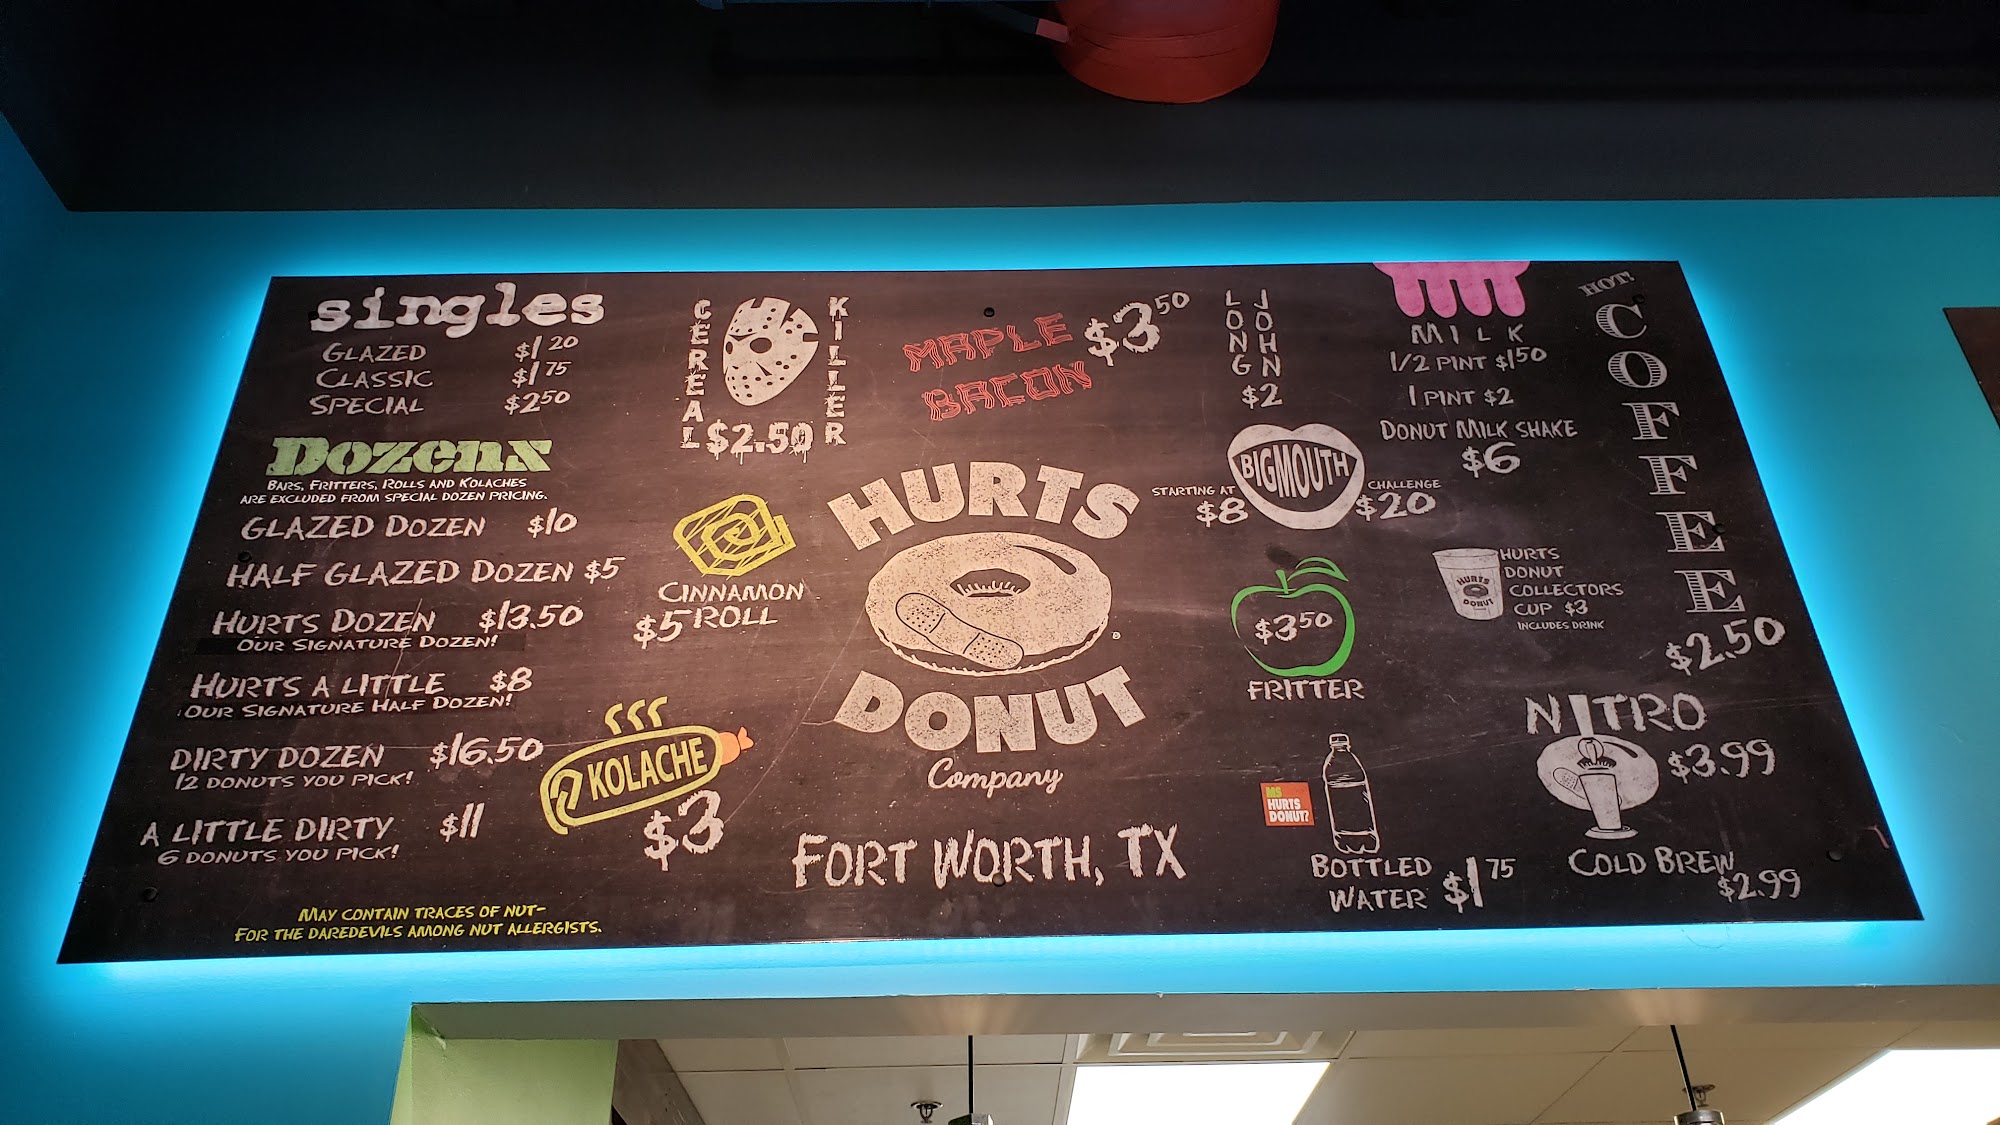 singles
GLAZED $1 20
CLASSIC $1 75
SPECIAL $2 50
DOZENS
BARS, FRITTERS, ROLLS AND KOLACHES
ARE EXCLUDED FROM SPECIAL DOZEN PRICING.
GLAZED DOZEN $10
HALF GLAZED DOZEN $5
HURTS DOZEN $13.50
OUR SIGNATURE DOZEN!
HURTS A LITTLE $8
OUR SIGNATURE HALF DOZEN!
DIRTY DOZEN $16.50
12 DONUTS YOU PICK!
A LITTLE DIRTY $11
6 DONUTS YOU PICK!
MAY CONTAIN TRACES OF NUT-
FOR THE DAREDEVILS AMONG NUT ALLERGISTS.
CEREAL
KILLER
$2.50
CINNAMON
ROLL
$5
KOLACHE
$3
MAPLE
BACON
$3 50
HURTS
DONUT
Company
FORT WORTH, TX
LONG
JOHN
$2
BIGMOUTH
STARTING AT
$8
CHALLENGE
$20
$3 50
FRITTER
MS
HURTS
DONUT?
BOTTLED
WATER $1 75
MILK
1/2 PINT $1 50
1 PINT $2
DONUT MILK SHAKE
$6
HURTS
DONUT
HURTS
DONUT
COLLECTORS
CUP $3
INCLUDES DRINK
HOT!
COFFEE
$2.50
NITRO
$3.99
COLD BREW
$2.99